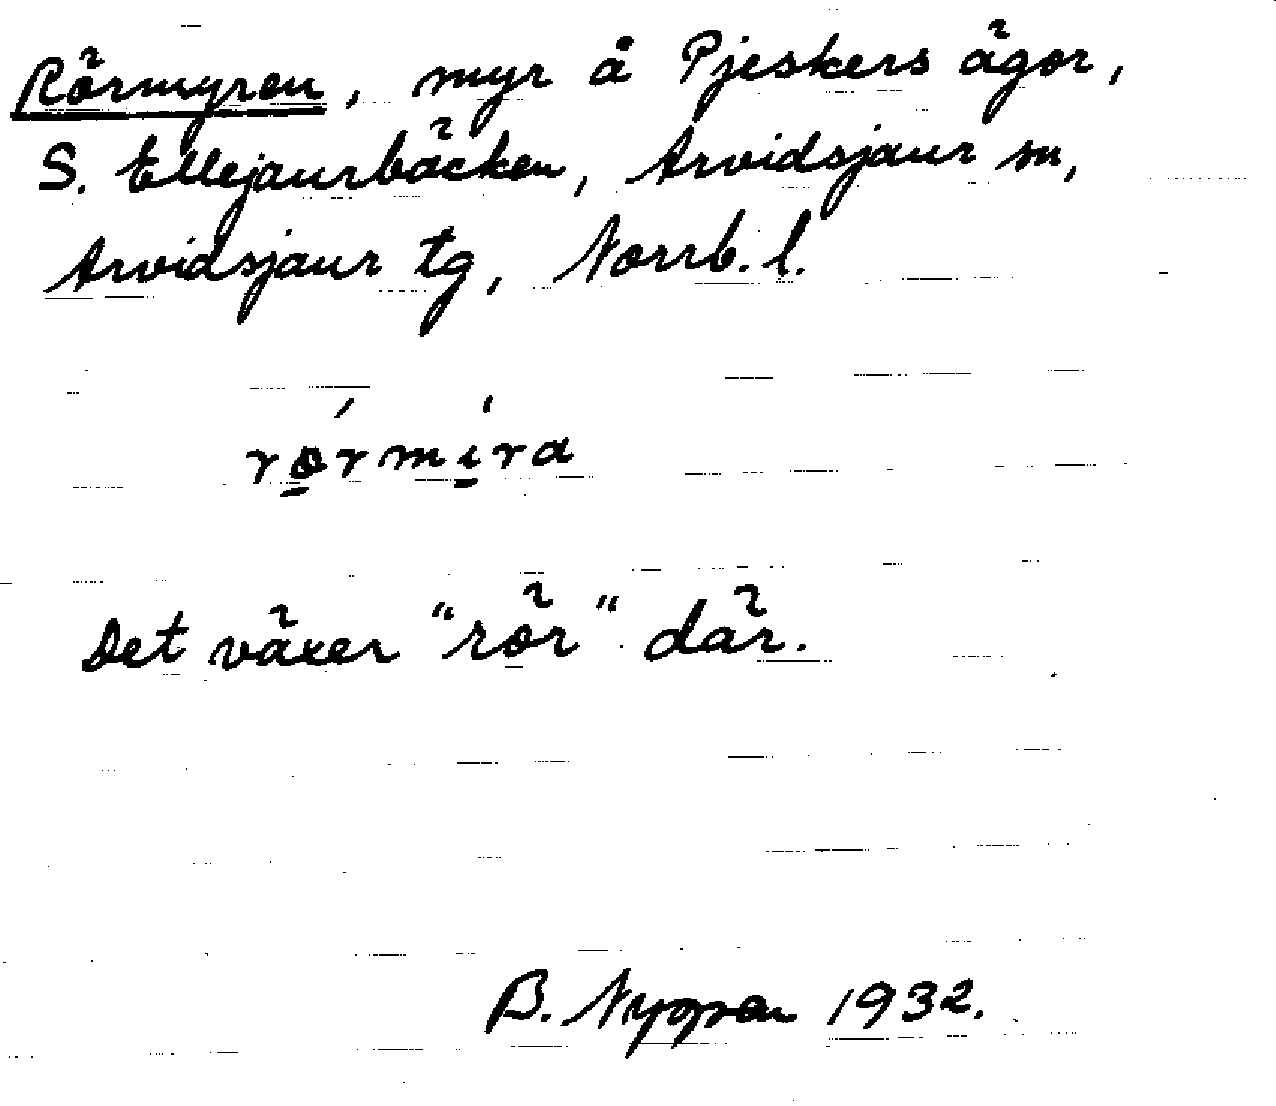 Rörmyren, myr å Pjeskers ägor,
S. Ellejaurbäcken, Arvidsjaur sn,
Arvidsjaur tg, Norrb. l.
rǿ̱rmi̱̍ra
Det växer "rör" där.
B. Nygren 1932.